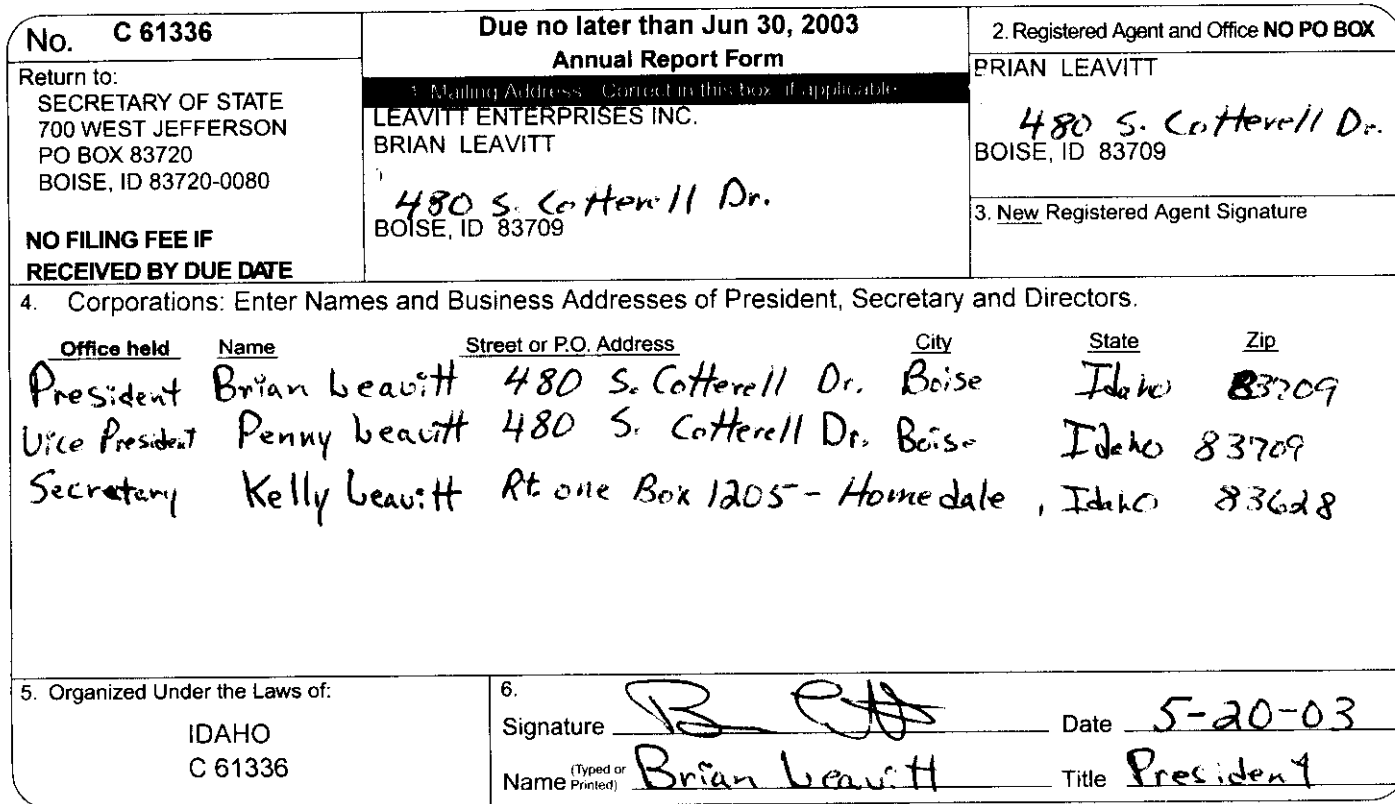 No. C 61336
Return to:
SECRETARY OF STATE
700 WEST JEFFERSON
PO BOX 83720
BOISE, ID 83720-0080
NO FILING FEE IF
RECEIVED BY DUE DATE
Due no later than Jun 30, 2003
Annual Report Form
1. Mailing Address: Correct in this box, if applicable
LEAVITT ENTERPRISES INC.
BRIAN LEAVITT
480 S. Cotterell Dr.
BOISE, ID 83709
2. Registered Agent and Office NO PO BOX
BRIAN LEAVITT
480 S. Cotterell Dr.
BOISE, ID 83709
3. New Registered Agent Signature
4. Corporations: Enter Names and Business Addresses of President, Secretary and Directors.
Office held Name Street or P.O. Address City State Zip
President Brian Leavitt 480 S. Cotterell Dr. Boise Idaho 83709
Vice President Penny Leavitt 480 S. Cotterell Dr. Boise Idaho 83709
Secretary Kelly Leavitt Rt. one Box 1205 - Homedale, Idaho 83628
5. Organized Under the Laws of:
IDAHO
C 61336
6.
Signature Date 5-20-03
Name (Typed or Printed) Brian Leavitt Title President